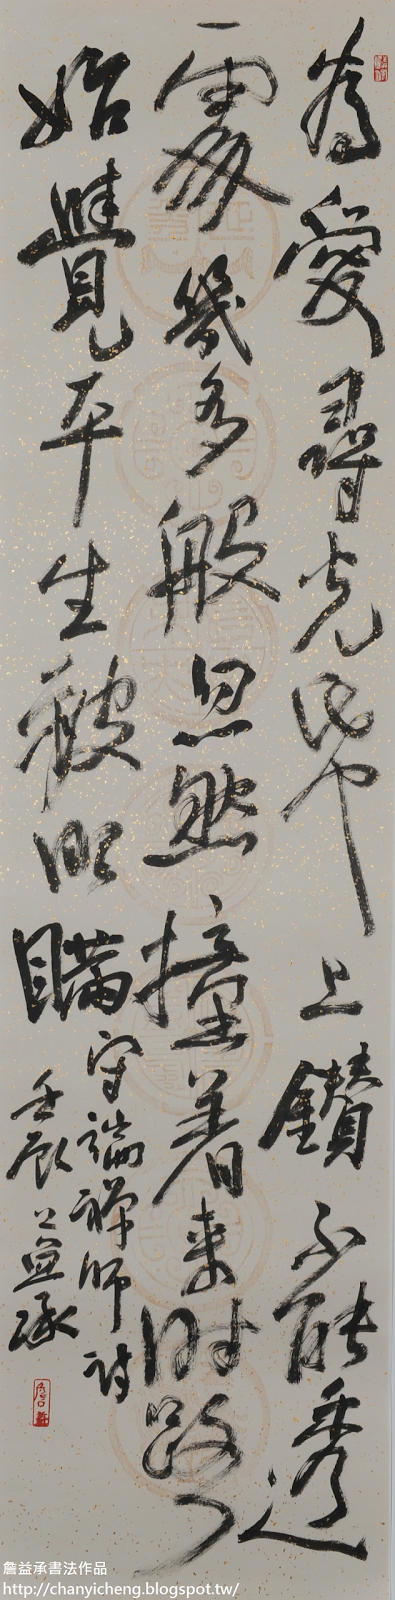 為愛尋光帋上鑽不能透
處幾多般忽然撞着来時路
始覺平生被眼瞞
守端禪師詩
壬辰益承
詹益承書法作品
http://chanyicheng.blogspot.tw/